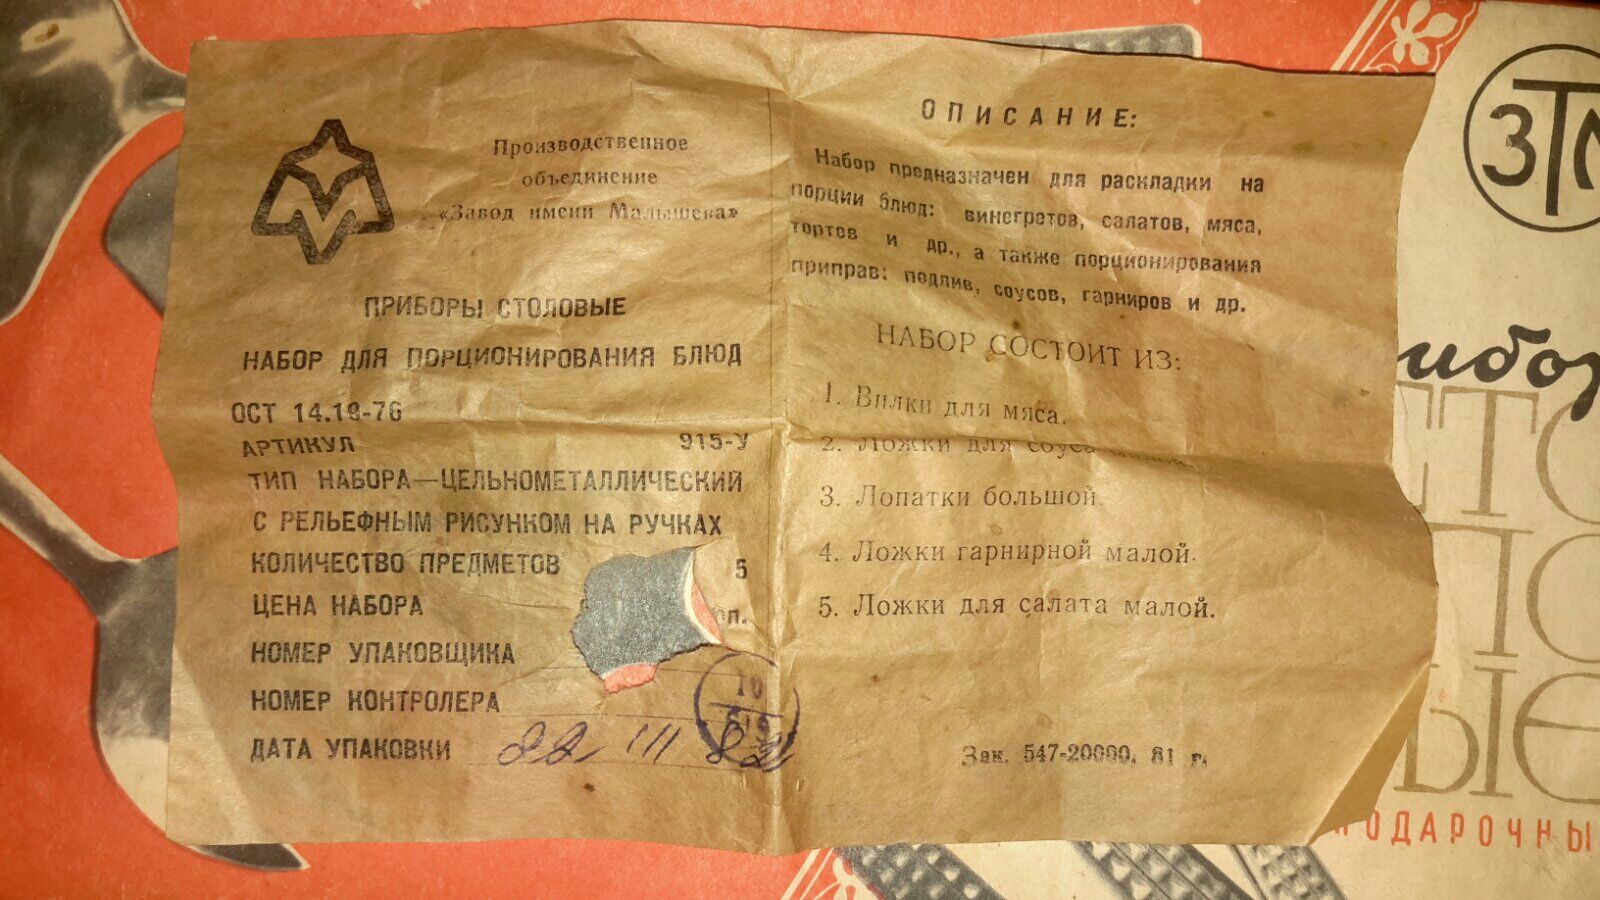 Производственное
объединение
«Завод имени Малышева»
ПРИБОРЫ СТОЛОВЫЕ
НАБОР ДЛЯ ПОРЦИОНИРОВАНИЯ БЛЮД
ОСТ 14.18-76
АРТИКУЛ 915-У
ТИП НАБОРА—ЦЕЛЬНОМЕТАЛЛИЧЕСКИЙ
С РЕЛЬЕФНЫМ РИСУНКОМ НА РУЧКАХ
КОЛИЧЕСТВО ПРЕДМЕТОВ 5
ЦЕНА НАБОРА оп.
НОМЕР УПАКОВЩИКА
НОМЕР КОНТРОЛЕРА
ДАТА УПАКОВКИ 22 III 82
10
ОПИСАНИЕ:
Набор предназначен для раскладки на
порции блюд: винегретов, салатов, мяса,
тортов и др., а также порционирования
приправ: подлив, соусов, гарниров и др.
НАБОР СОСТОИТ ИЗ:
1. Вилки для мяса.
2. Ложки для соуса малой.
3. Лопатки большой.
4. Ложки гарнирной малой.
5. Ложки для салата малой.
Зак. 547-20000. 81 г.
ЗТМ
ибор
СТО
ЛО
ЫЕ
ПОДАРОЧНЫ